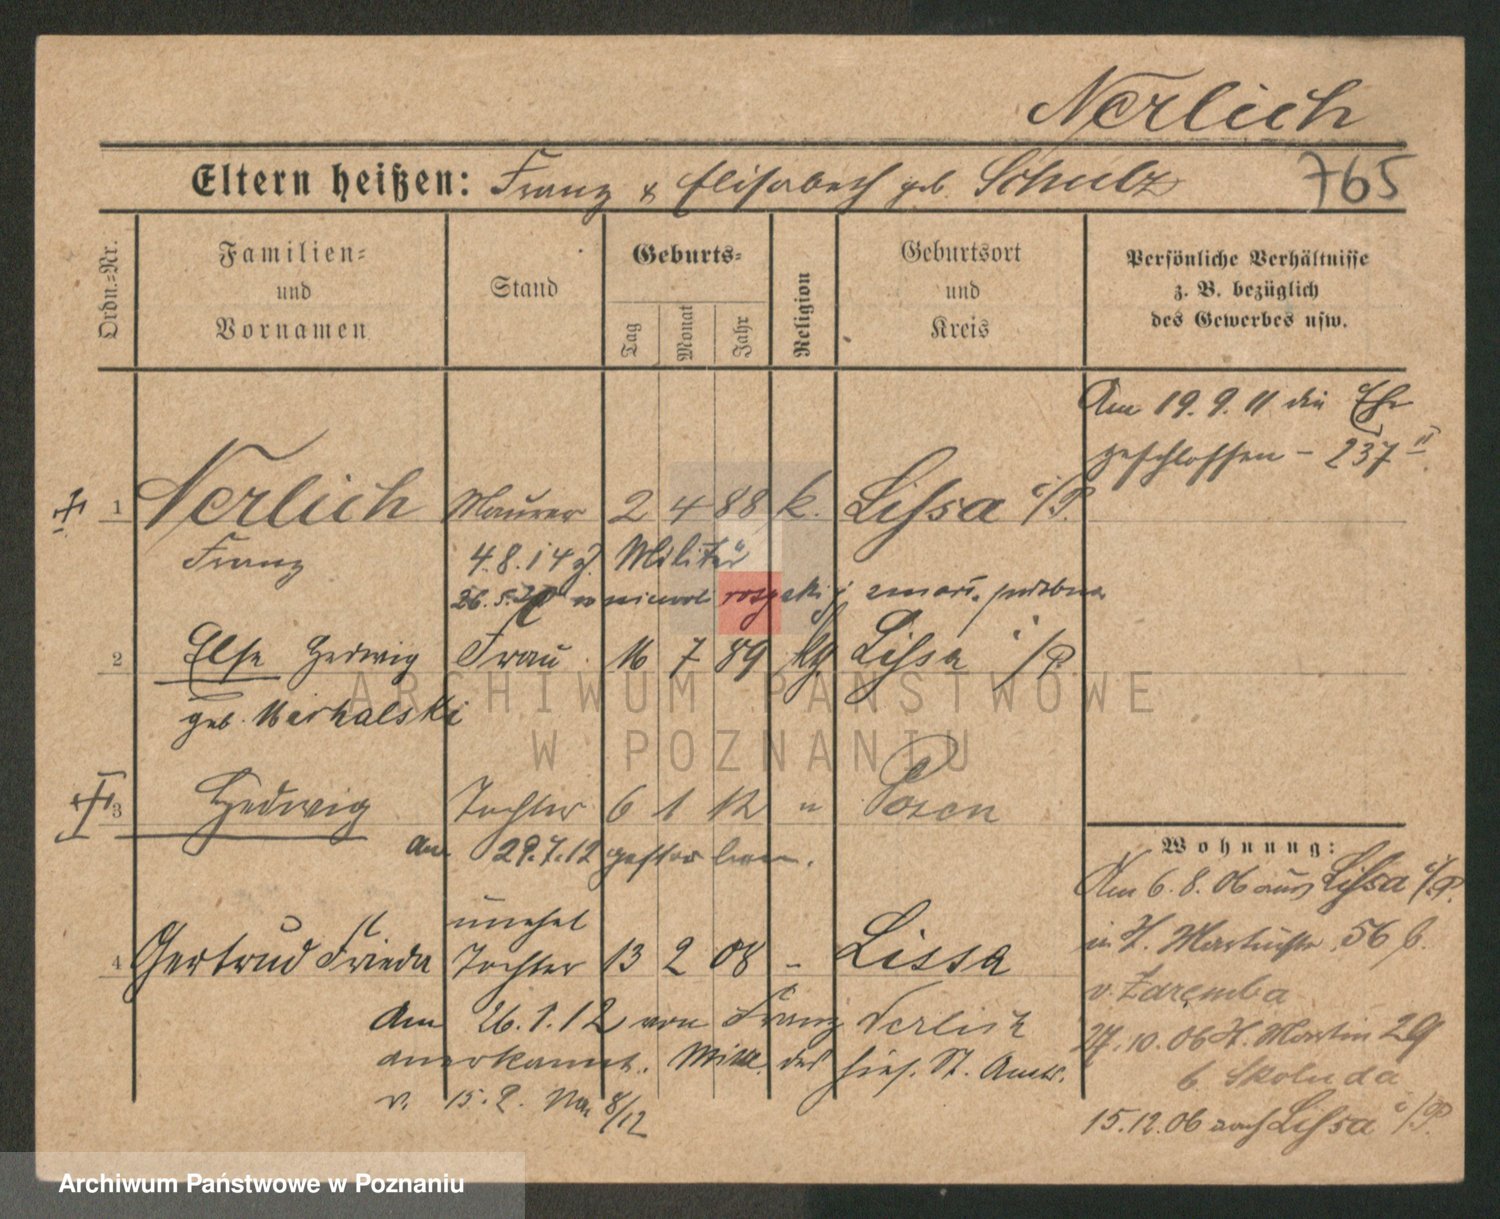 Nerlich
Eltern heißen: Franz & Elisabeth geb. Schulz 765
Ordn.-Nr.
Familien- und Vornamen
Stand
Geburts-
Tag Monat Jahr
Religion
Geburtsort und Kreis
Persönliche Verhältnisse
z. B. bezüglich
des Gewerbes usw.
Am 19.9.11 die Ehe
geschlossen – 237 II
1 Nerlich Maurer 2 4 88 k. Lissa i/P.
Franz 4.8.14 z. Militär
26.5. w niewoli rosyjskij
2 Else Hedwig Frau 16 7 89 Lissa i/P.
geb.
3 Hedwig Tochter 6 1 12 " Posen
am 29.7.12 gestorben.
unehel
4 Gertrud Frieda Tochter 13 2 08 – Lissa
Am 26.1.12 von Franz Nerlich
anerkannt. Mitt. des hies. St. Amts.
v. 15.2. No. 8/12
Wohnung:
Am 6.8.06 aus Lissa i/P.
in St. Martinstr. 56 b.
v. Zaremba
27.10.06 St. Martin 29
b. Skoluda
15.12.06 nach Lissa i/P.
ARCHIWUM PAŃSTWOWE
W POZNANIU
Archiwum Państwowe w Poznaniu